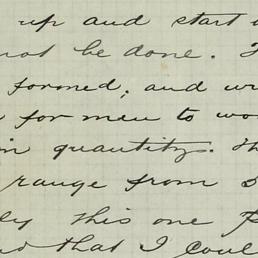 up and start
not be done.
formed; and
for men to
in quantity. Th
range from
this one
that I coul